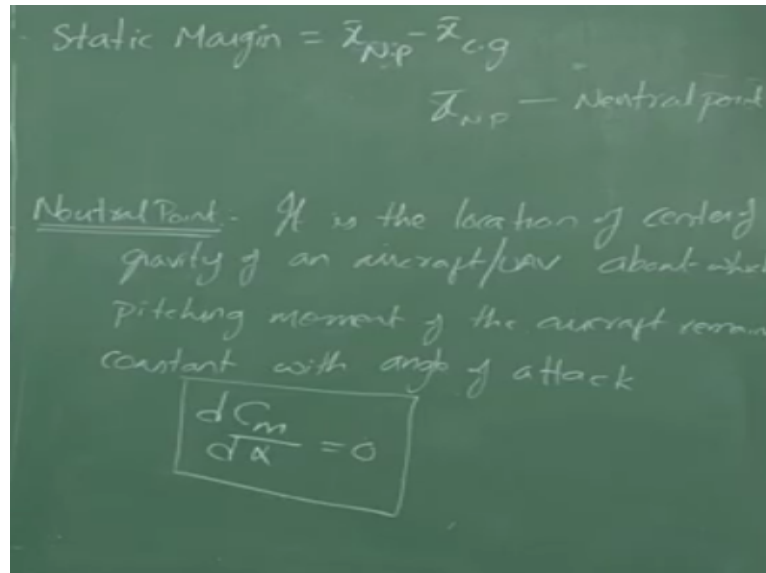 Static Margin = x̄_N.P - x̄_c.g
x̄_NP — Neutral point
Neutral Point - It is the location of center of
gravity of an aircraft/UAV about which
pitching moment of the aircraft remain
constant with angle of attack
dC_m/dα = 0